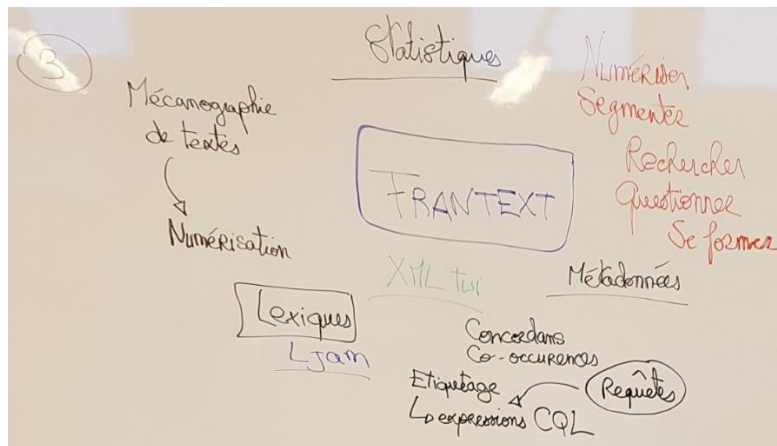 3
Statistiques
Mécanographie
de textes
Numérisation
Numériser
Segmenter
Rechercher
Questionner
Se former
FRANTEXT
XML
Métadonnées
Lexiques
LJam
Concordans
Co-occurences
Etiquetage
Requêtes
expressions CQL